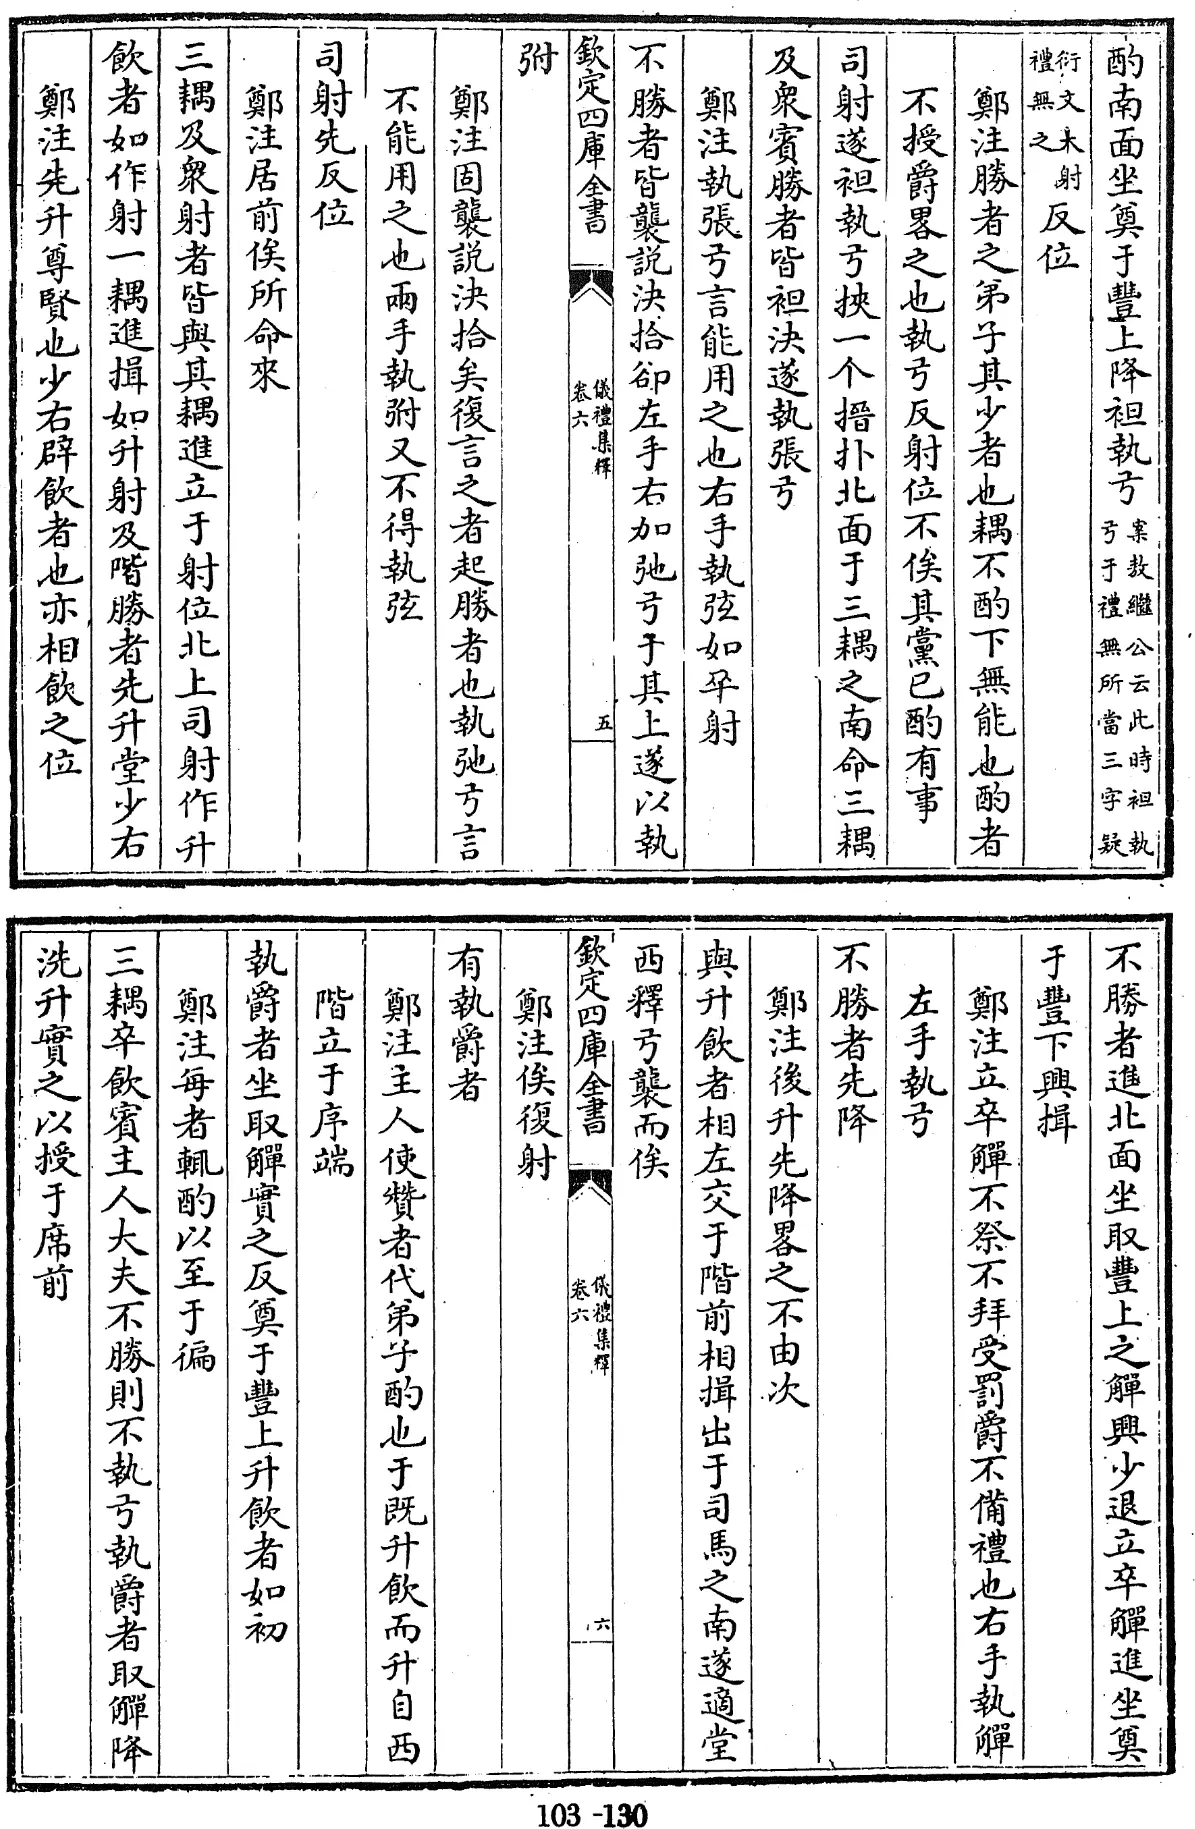 酌南面坐奠于豐上降袒執弓案敖繼公云此時袒執弓于禮無所當三字疑
衍文未射禮無之反位
鄭注勝者之弟子其少者也耦不酌下無能也酌者
不授爵畧之也執弓反射位不俟其黨已酌有事
司射遂袒執弓挾一个搢扑北面于三耦之南命三耦
及衆賓勝者皆袒決遂執張弓
鄭注執張弓言能用之也右手執弦如卒射
不勝者皆襲說決拾卻左手右加弛弓于其上遂以執
欽定四庫全書
儀禮集釋
卷六
五
弣
鄭注固襲說決拾矣復言之者起勝者也執弛弓言
不能用之也兩手執弣又不得執弦
司射先反位
鄭注居前俟所命來
三耦及衆射者皆與其耦進立于射位北上司射作升
飲者如作射一耦進揖如升射及階勝者先升堂少右
鄭注先升尊賢也少右辟飲者也亦相飲之位
不勝者進北面坐取豐上之觶興少退立卒觶進坐奠
于豐下興揖
鄭注立卒觶不祭不拜受罰爵不備禮也右手執觶
左手執弓
不勝者先降
鄭注後升先降畧之不由次
與升飲者相左交于階前相揖出于司馬之南遂適堂
西釋弓襲而俟
欽定四庫全書
儀禮集釋
卷六
六
鄭注俟復射
有執爵者
鄭注主人使贊者代弟子酌也于既升飲而升自西
階立于序端
執爵者坐取觶實之反奠于豐上升飲者如初
鄭注每者輒酌以至于徧
三耦卒飲賓主人大夫不勝則不執弓執爵者取觶降
洗升實之以授于席前
103-130